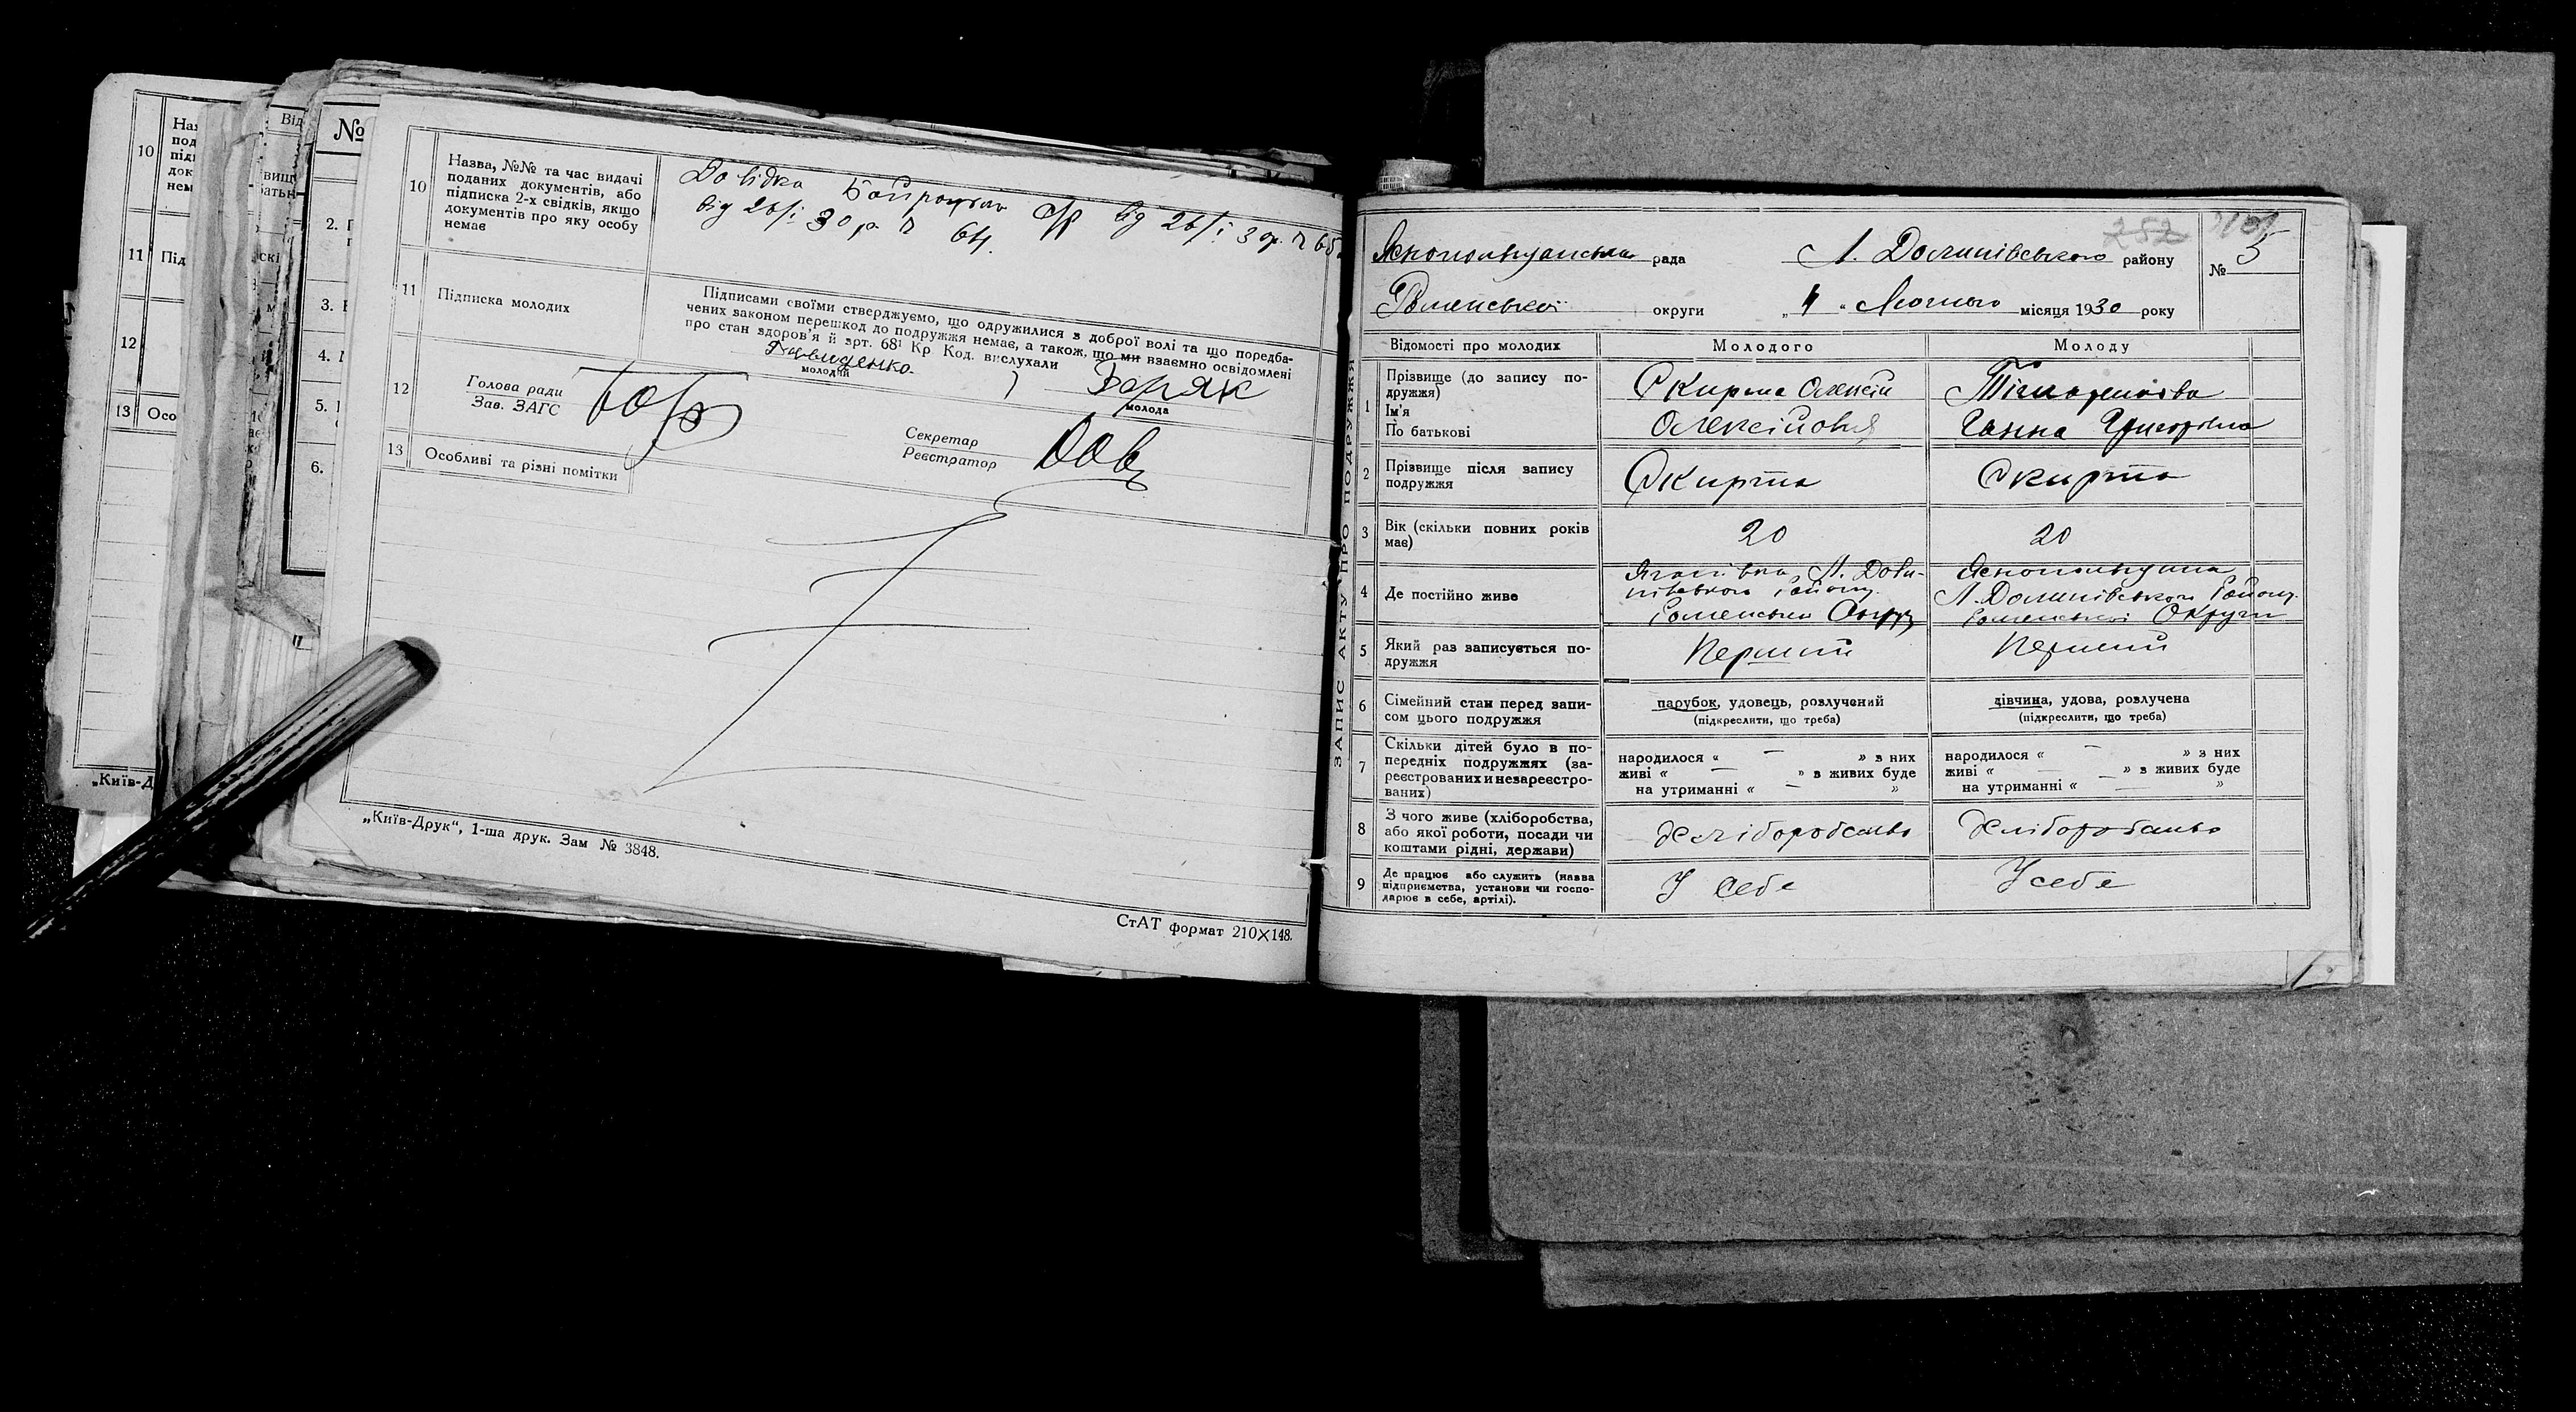 10
Наз
11
Під
12
13
Осо
„Київ-Д
Від
№
2.
3.
4.
5.
6.
10
Назва, №№ та час видачі
поданих документів, або
підписка 2-х свідків, якщо
документів про яку особу
немає
Довідка с/р від 26/I 30р. №
від 26/I 30 р. № 64.
11
Підписка молодих
Підписами своїми стверджуємо, що одружилися з доброї волі та що поредба-
чених законом перешкод до подружжя немає, а також, що ми взаємно освідомлені
про стан здоров'я й арт. 68¹ Кр. Код. вислухали
Давиденко
молодий
Боряк
молода
12
Голова ради
Зав. ЗАГС
Секретар
Реєстратор
13
Особливі та різні помітки
„Київ-Друк“, 1-ша друк. Зам № 3848.
СтАТ формат 210×148.
ЗАПИС АКТУ ПРО ПОДРУЖЖЯ
252
рада
Л. Долинівського району
№ 5
Роменської округи
„ “ Лютого місяця 1930 року
Відомості про молодих
Молодого
Молоду
1
Прізвище (до запису по-
дружжя)
Ім'я
По батькові
Скирта Олексій
Олексійович
Ганна Григорівна
2
Прізвище після запису
подружжя
Скирта
Скирта
3
Вік (скільки повних років
має)
20
20
4
Де постійно живе
Л. Доли-
нівського району
Роменської Округи
Л. Долинівського Району
Роменської Округи
5
Який раз записується по-
дружжя
Перший
Перший
6
Сімейний стан перед запи-
сом цього подружжя
парубок, удовець, розлучений
(підкреслити, що треба)
дівчина, удова, розлучена
(підкреслити, що треба)
7
Скільки дітей було в по-
передніх подружжях (за-
реєстрованих и незареєстро-
ваних)
народилося « — » з них
живі « — » в живих буде
на утриманні « — »
народилося « — » з них
живі « — » в живих буде
на утриманні « — »
8
З чого живе (хліборобства,
або якої роботи, посади чи
коштами рідні, держави)
Хліборобство
Хліборобство
9
Де працює або служить (назва
підприємства, установи чи госпо-
дарює в себе, артілі).
У себе
У себе